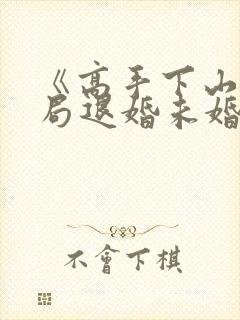 《高手下山
局退婚未婚
不會下棋